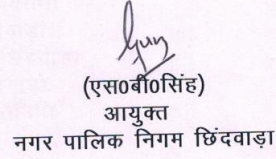 (एस0बी0सिंह)
आयुक्त
नगर पालिक निगम छिंदवाड़ा